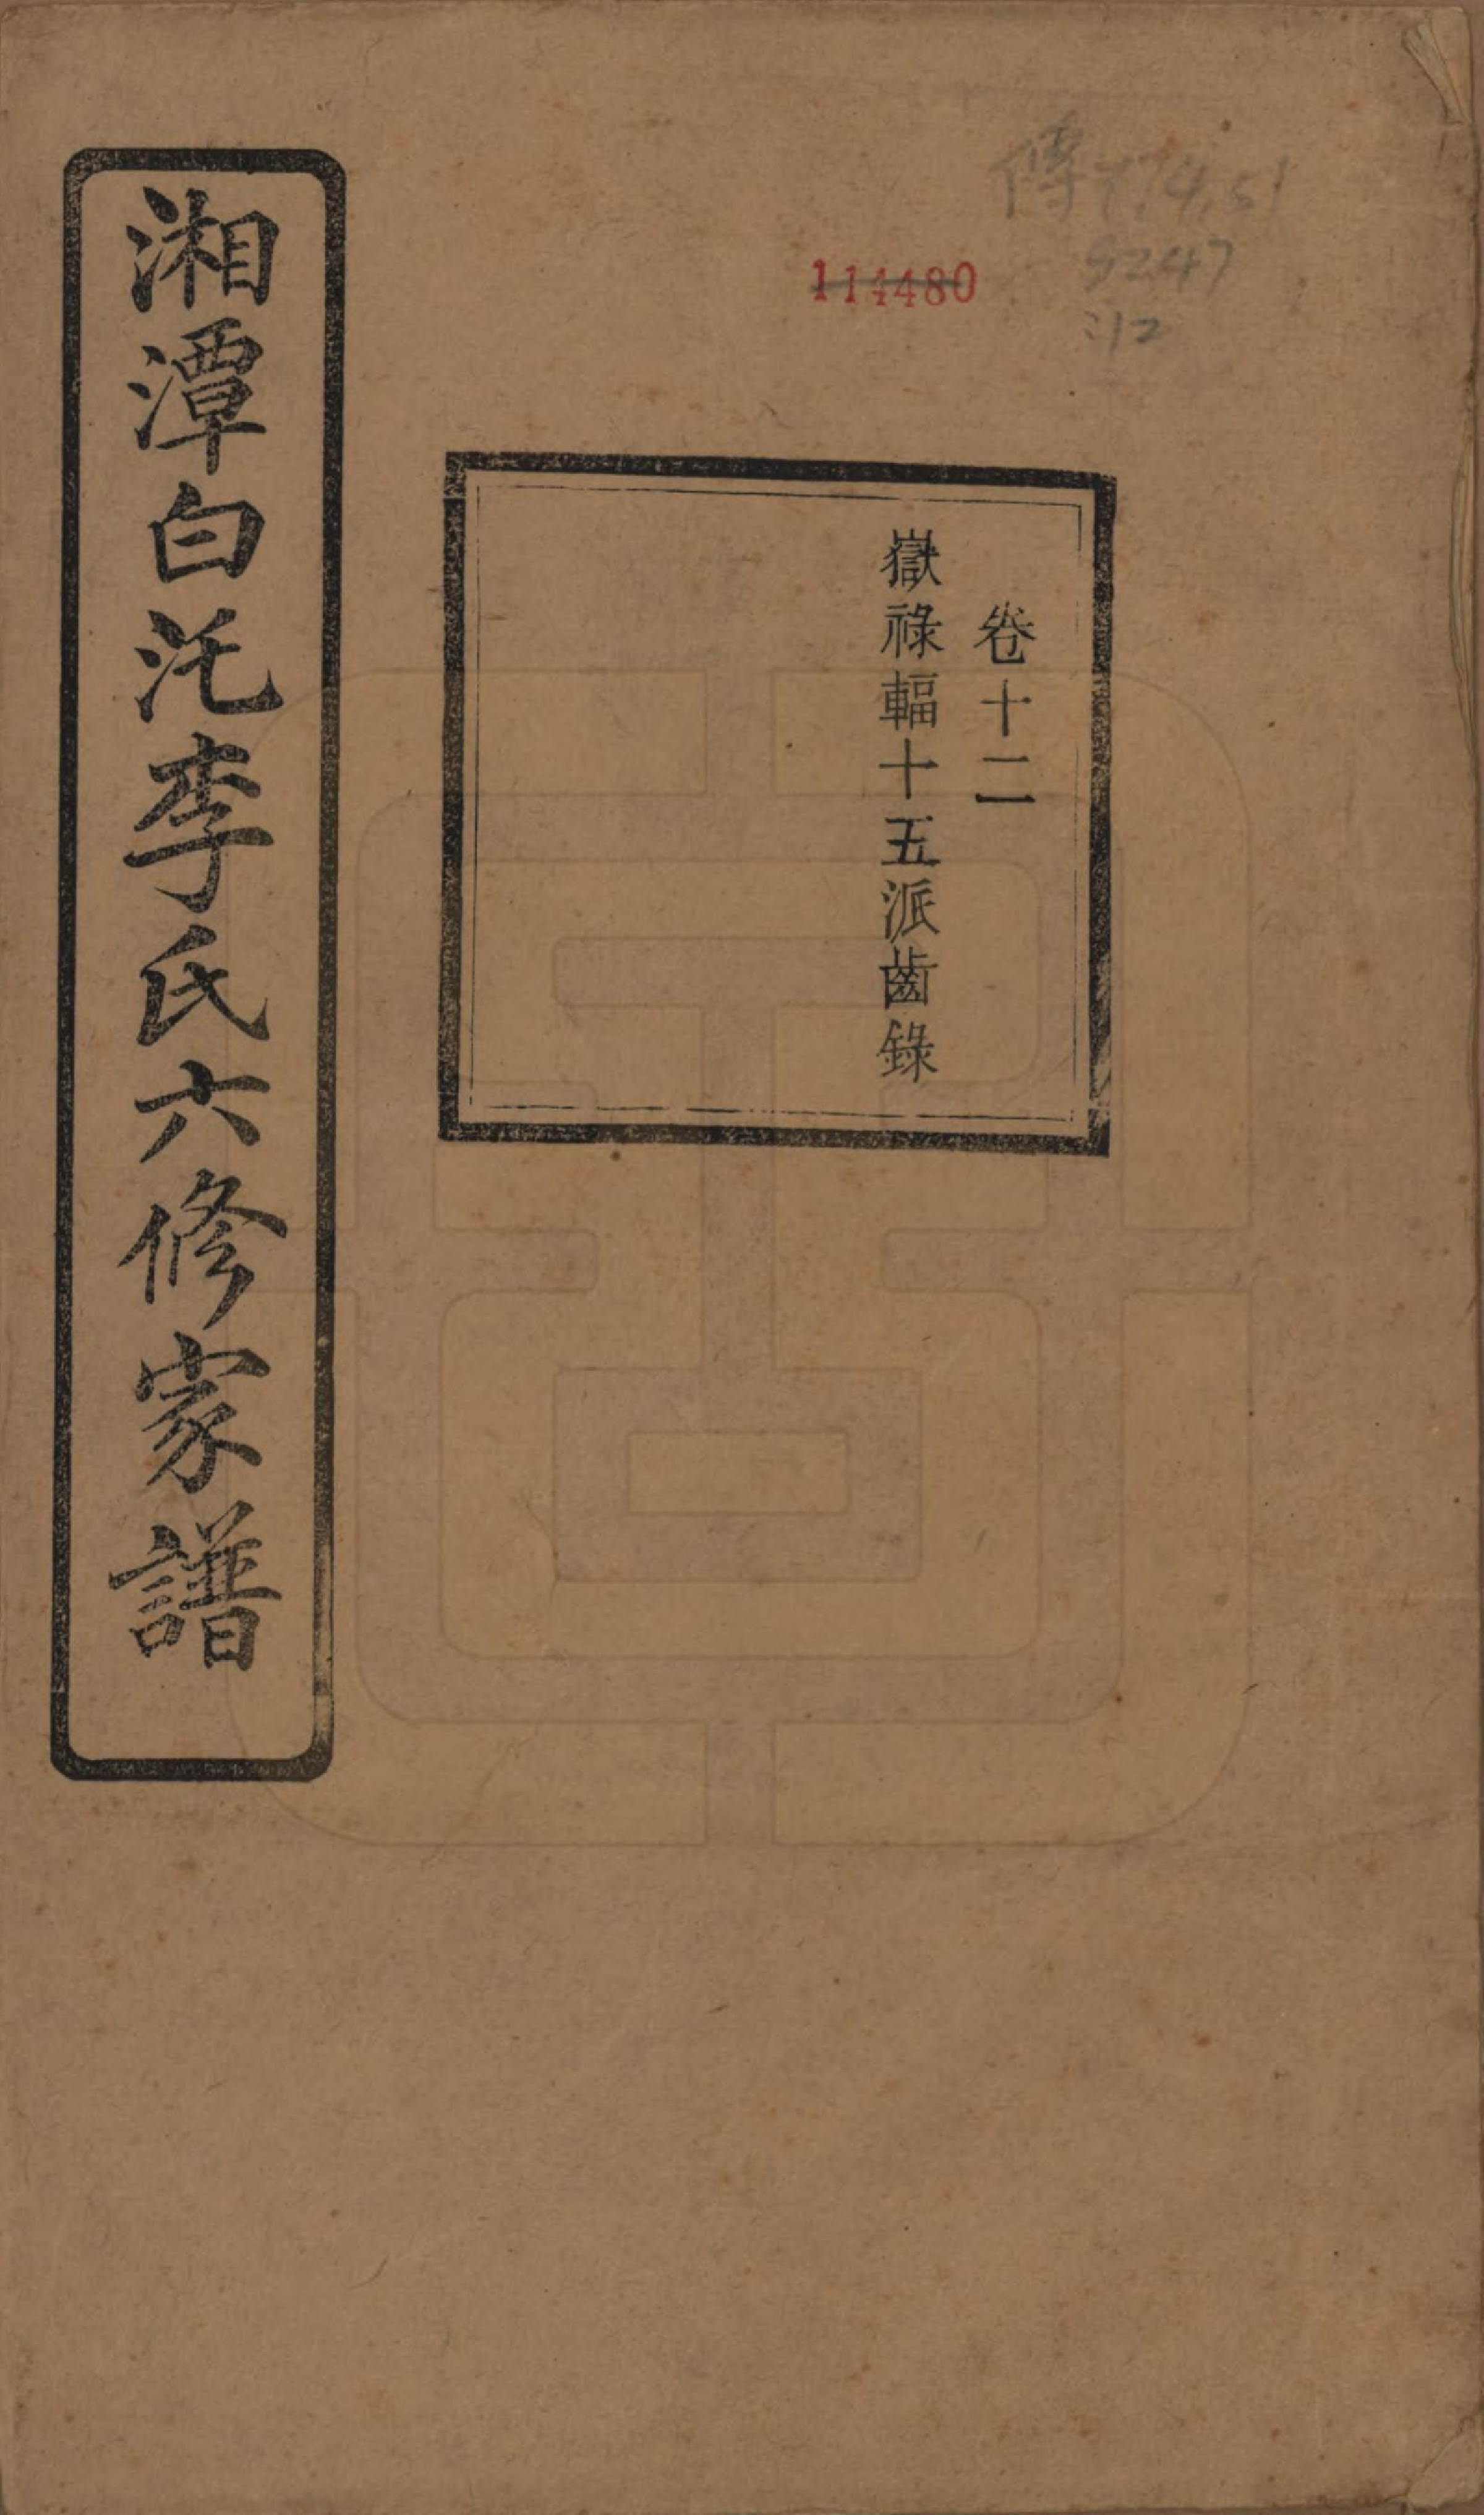 傳774.51
9247
:12
114480
卷十二
嶽祿輻十五派齒錄
湘潭白汑李氏六修家譜